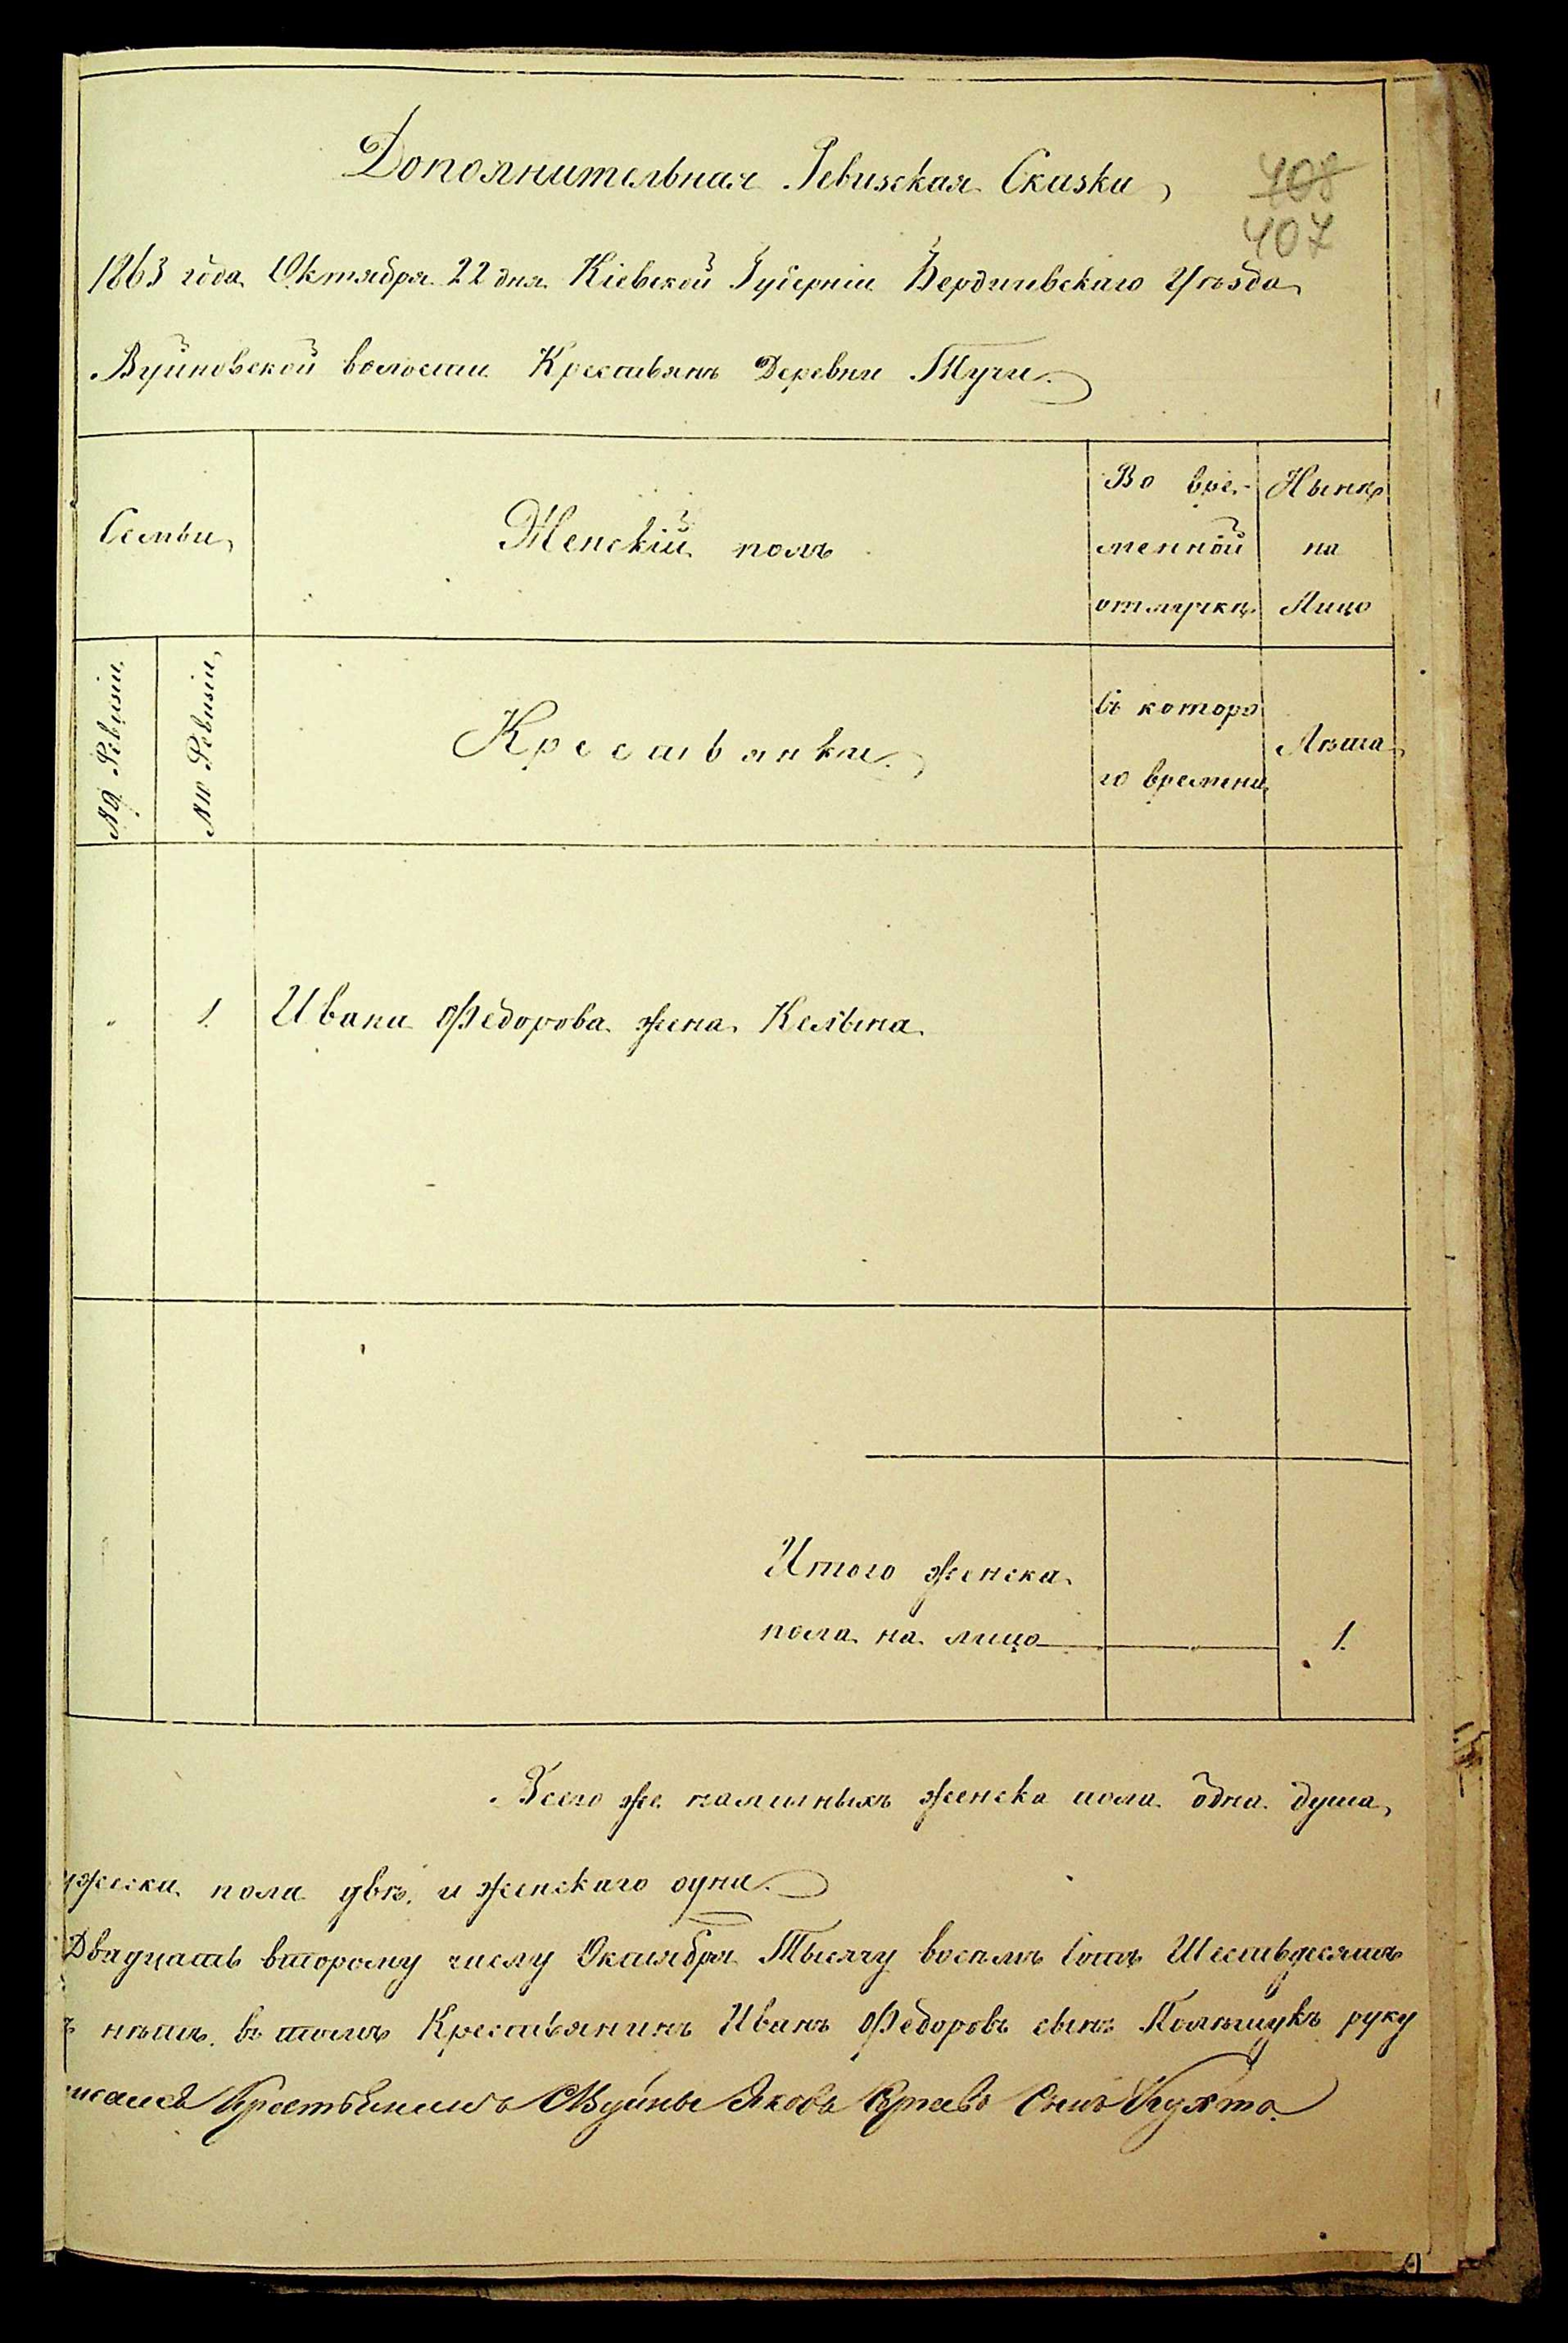 Дополнительная Ревизская Сказка
408
407
1863 года Октября 22 дня Кіевской Губерніи Бердичевскаго Уѣзда
Вуйновской волости Крестьянъ Деревни Тучи
Семьи
Женскій полъ
Во вре-
менной
отлучкѣ
Нынѣ
на
Лицо
№ 9 Ревизіи
№ 10 Ревизіи
Крестьянки
Съ которо
го времени
Лѣта
1. Ивана Федорова жена Келына
Итого женска
пола на лицо 1.
Всего же наличныхъ женска пола одна душа
жеска пола двѣ и женскаго одна
Двадцать второму числу Октября Тысячу восемъ Сотъ Шестьдесятъ
нѣтъ въ томъ Крестьянинъ Иванъ Федоровъ сынъ Полѣщукъ руку
писался Крестьенинъ СВуйны Яковъ Сынъ Кухта